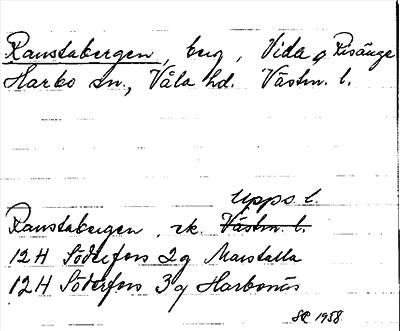 Ranstabergen, berg, Vida o Risänge
Harbo sn., Våla hd. Västm. l.
Upps. l.
Ranstabergen, ek. Västm. l.
12H Söderfors 2g Marstalla
12H Söderfors 3g Harbonäs
1958